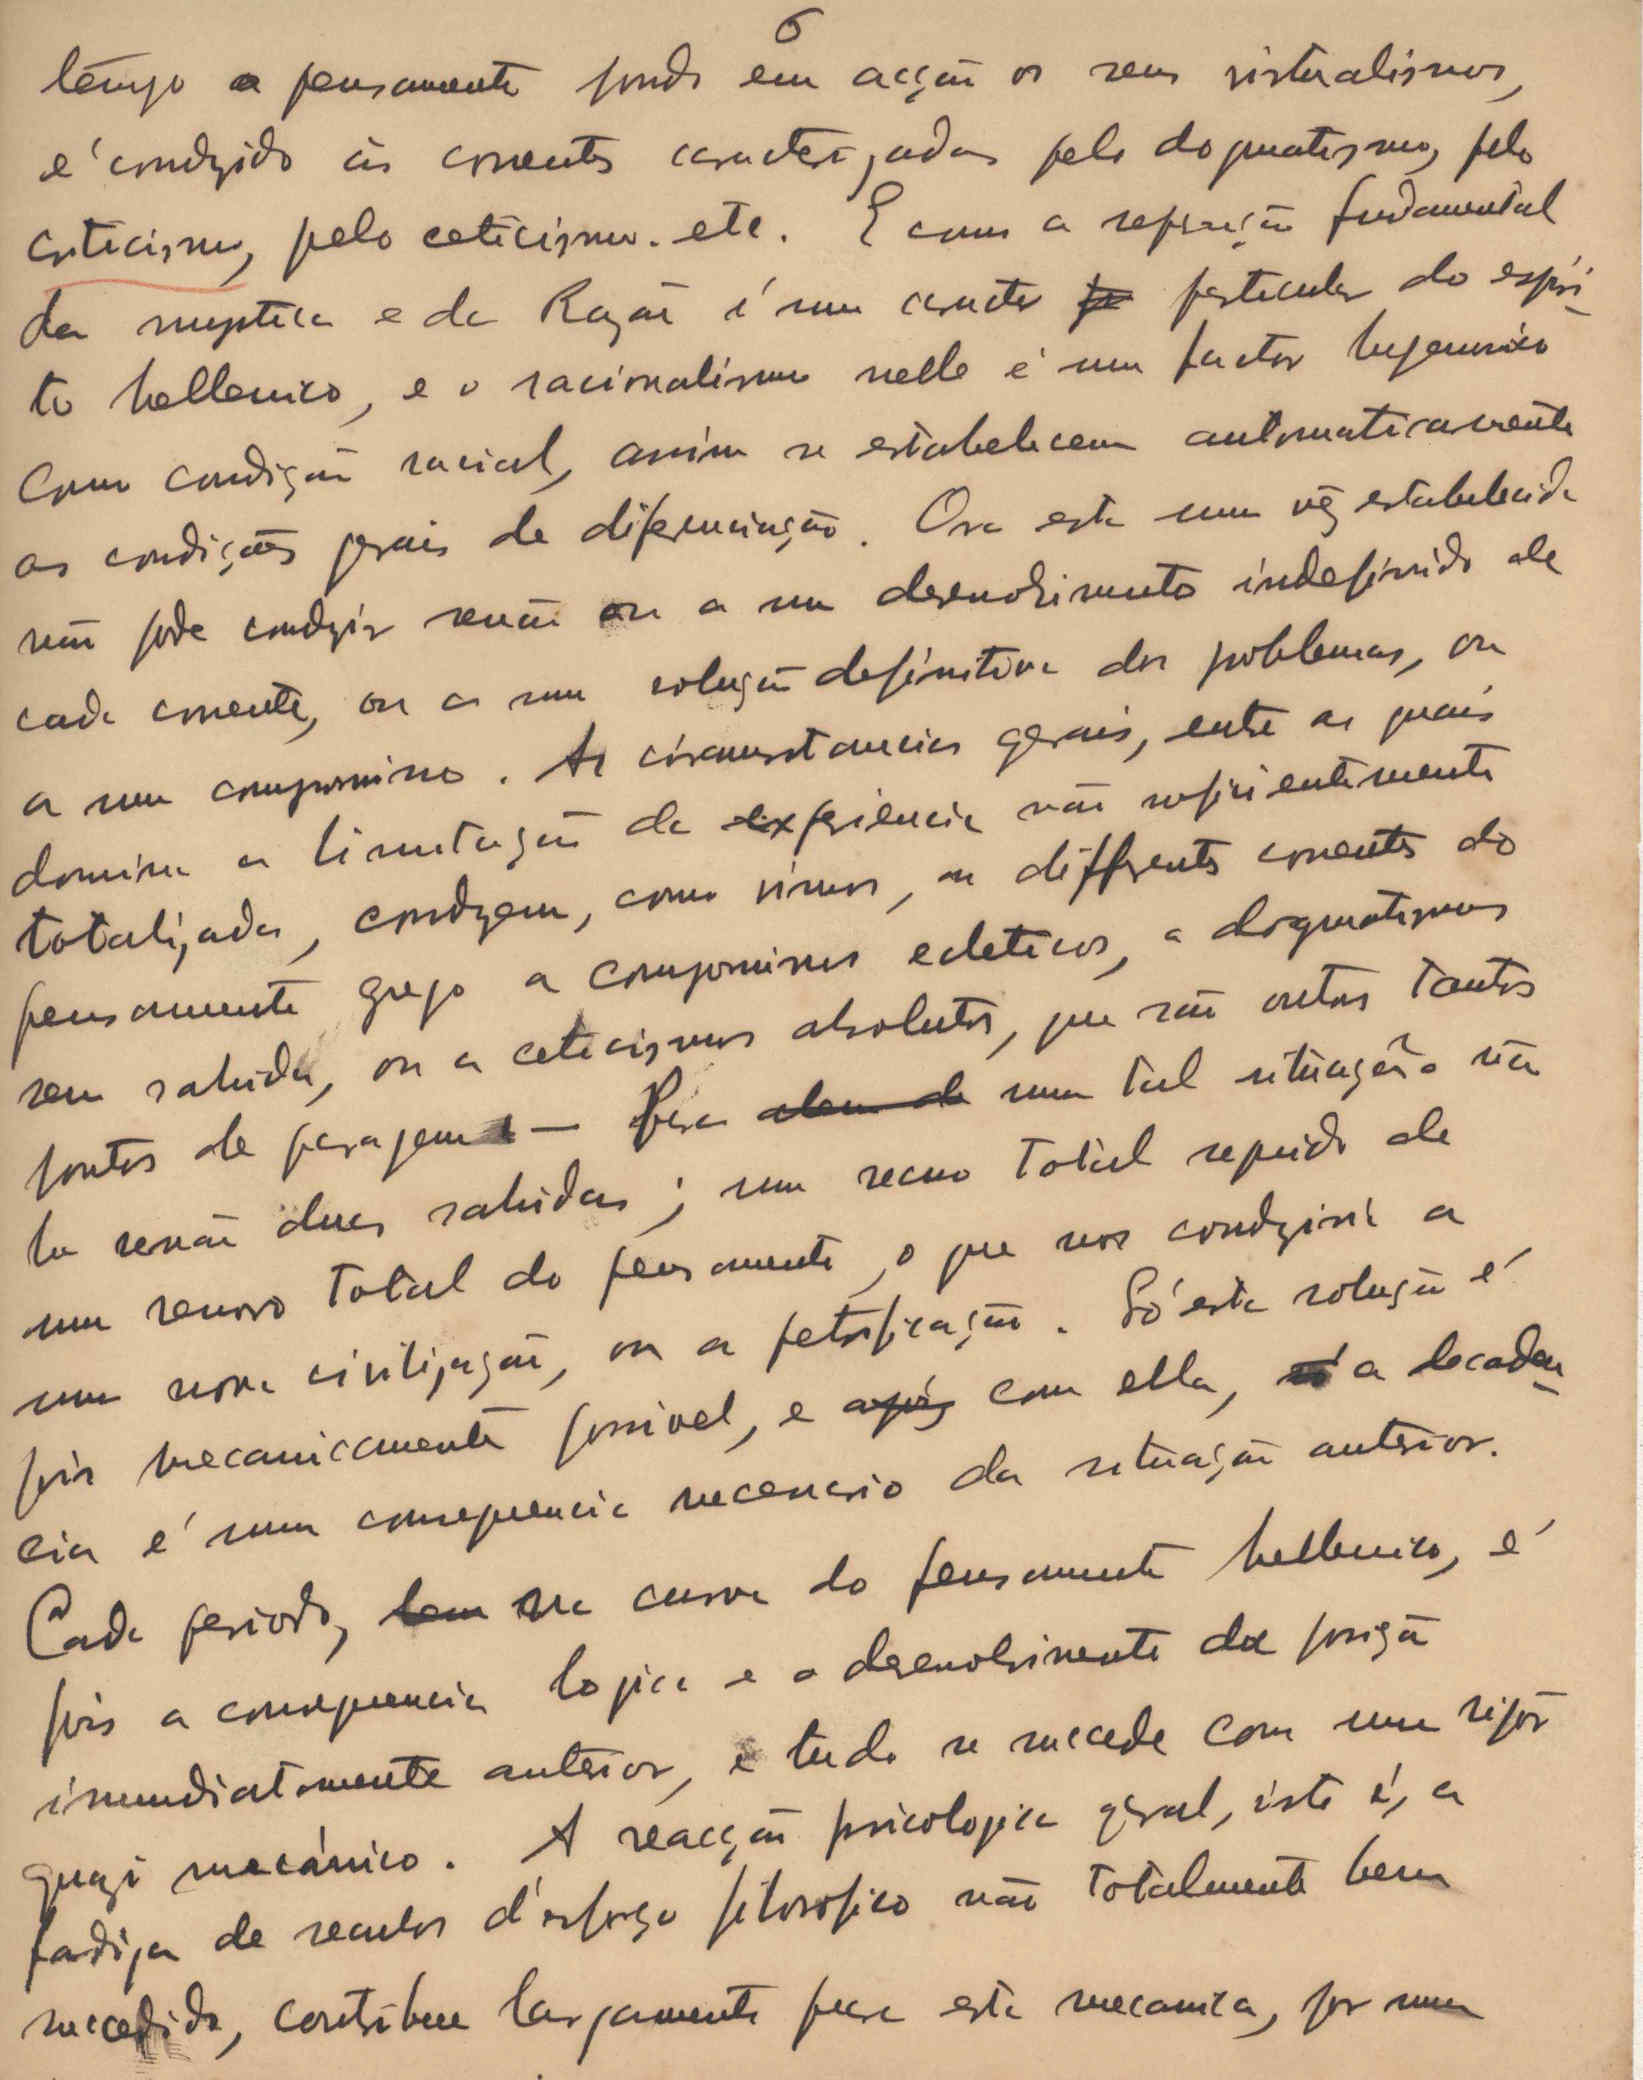 6
tempo o pensamento pondo em acção os seus virtualismos,
é conduzido ás correntes caracterizadas pelo dogmatismo, pelo
criticismo, pelo ceticismo. etc. E como a separação fundamental
da mystica e da Razão é um caracter particular do espiri-
to hellenico, e o racionalismo nelle é um factor hegemonico
como condição racial, assim se estabelecem automaticamente
as condições gerais de diferenciação. Ora esta uma vez estabelecida
não pode conduzir senão ou a um desenvolvimento indefinido de
cada corrente, ou a uma solução definitiva dos problemas, ou
a um compromisso. As circumstancias gerais, entre as quais
domina a limitação da experiencia não suficientemente
totalizada, conduzem, como vimos, as differentes correntes do
pensamento grego a compromissos ecleticos, a dogmatismos
sem sahida, ou a ceticismos absolutos, que são outros tantos
pontos de paragem — Para alem de uma tal situação não
ha senão duas sahidas; um recuo total seguido de
um renovo total do pensamento, o que nos conduziria a
uma nova civilização, ou a petrificação. Só esta solução é
pois mecanicamente possivel, e após com ella, a decaden-
cia é uma consequencia necessario da situação anterior.
Cada periodo, tem na curva do pensamento hellenico, é
pois a consequencia logica e o desenvolvimento da posição
immediatamente anterior, e tudo se succede com um rigor
quazi mecánico. A reacção psicologica geral, isto é, a
fadiga de seculos d'esforço filosofico não totalmente bem
succedido, contribue largamente para esta mecanica, por uma